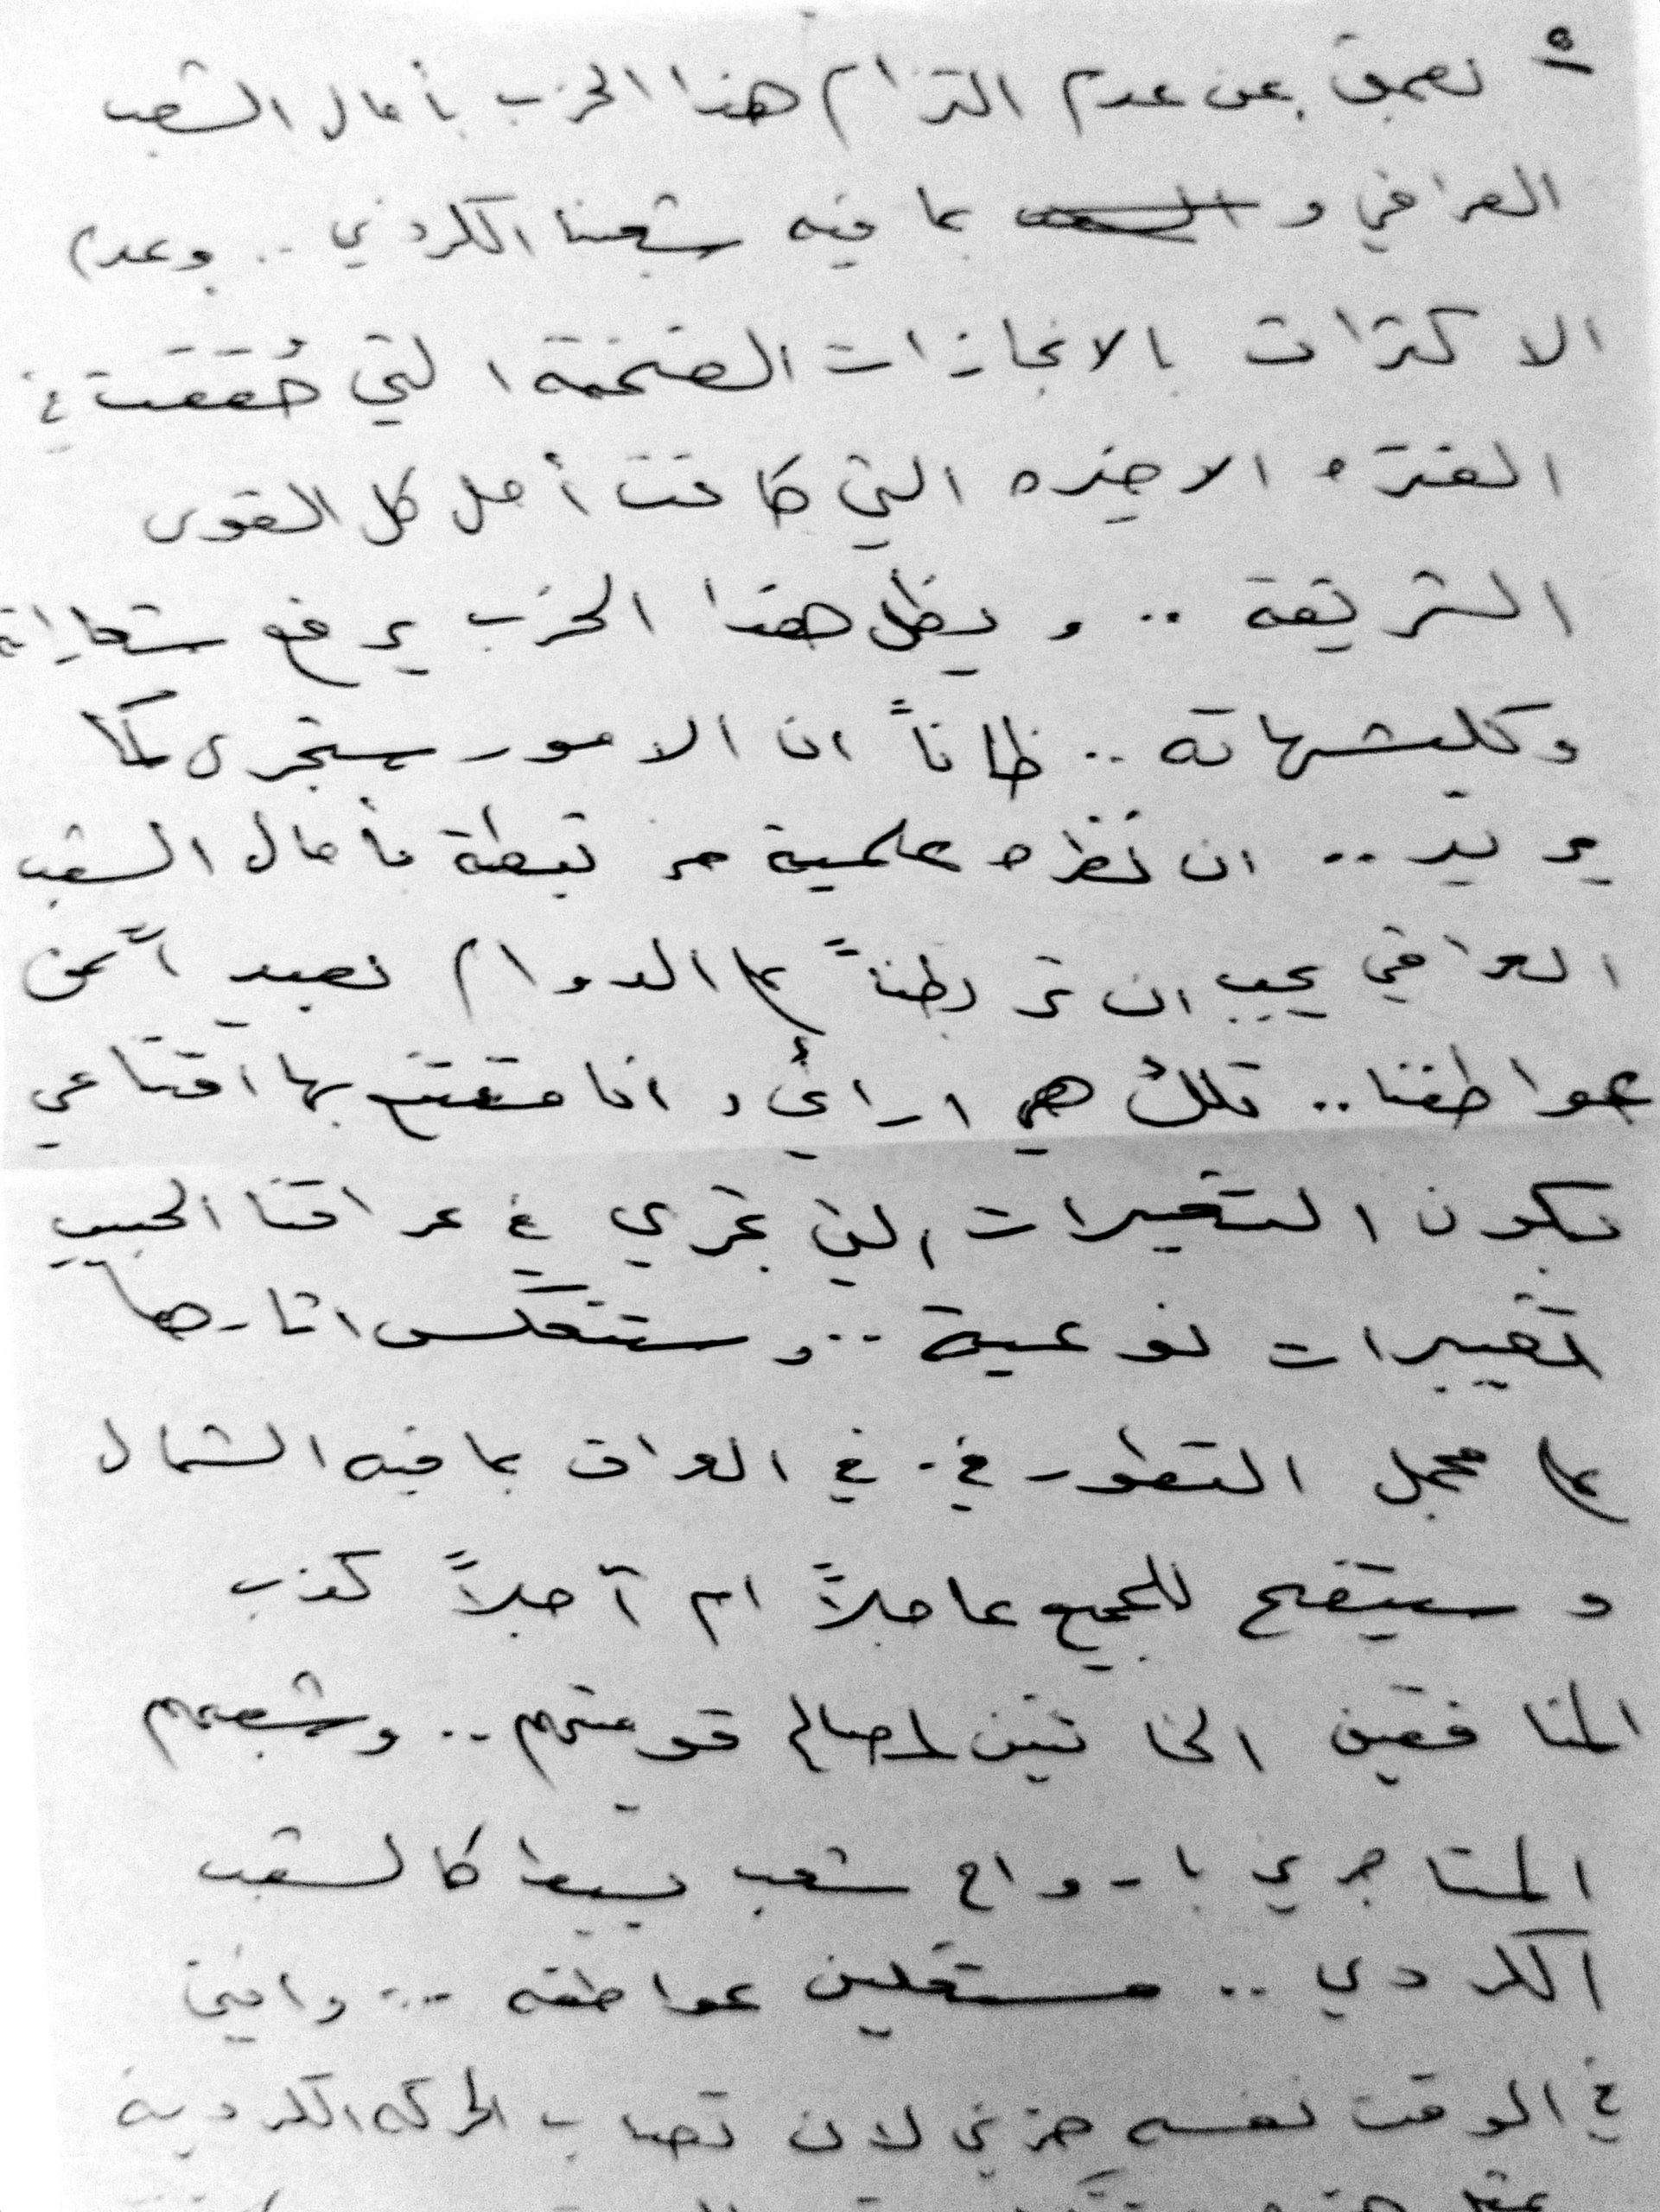 ٥ بعمق عن عدم التزام هذا الحزب بأمال الشعب
العراقي و بما فيه شعبنا الكردي .. وعدم
الاكتراث بالانجازات الضخمة التي حُققت في
الفتره الاخيره التي كانت أمل كل القوى
الشريفة .. و يظل هذا الحزب يرفع شعاراته
وكليشهاته .. ظاناً ان الامور ستجرى كما
يريد .. ان نظره علمية مرتبطة بأمال الشعب
العراقي يجب ان تربطنا على الدوام بعيد عن
عواطفنا .. تلك هي ارائي و انا مقتنع بها اقتناعي
بكون التغيرات التي تجري في عراقنا الحبيب
تغييرات نوعية .. و ستنعكس اثارها
على مجمل التطور في . في العراق بما فيه الشمال
و سيتضح للجميع عاجلاً ام آجلاً كذب
المنافقين الخائنين لمصالح قوميتهم .. وشعبهم
المتاجرين بارواح شعب بسيط كالشعب
الكردي .. مستغلين عواطفه ... وانني
في الوقت نفسه حزين لان تصاب الحركه الكردية